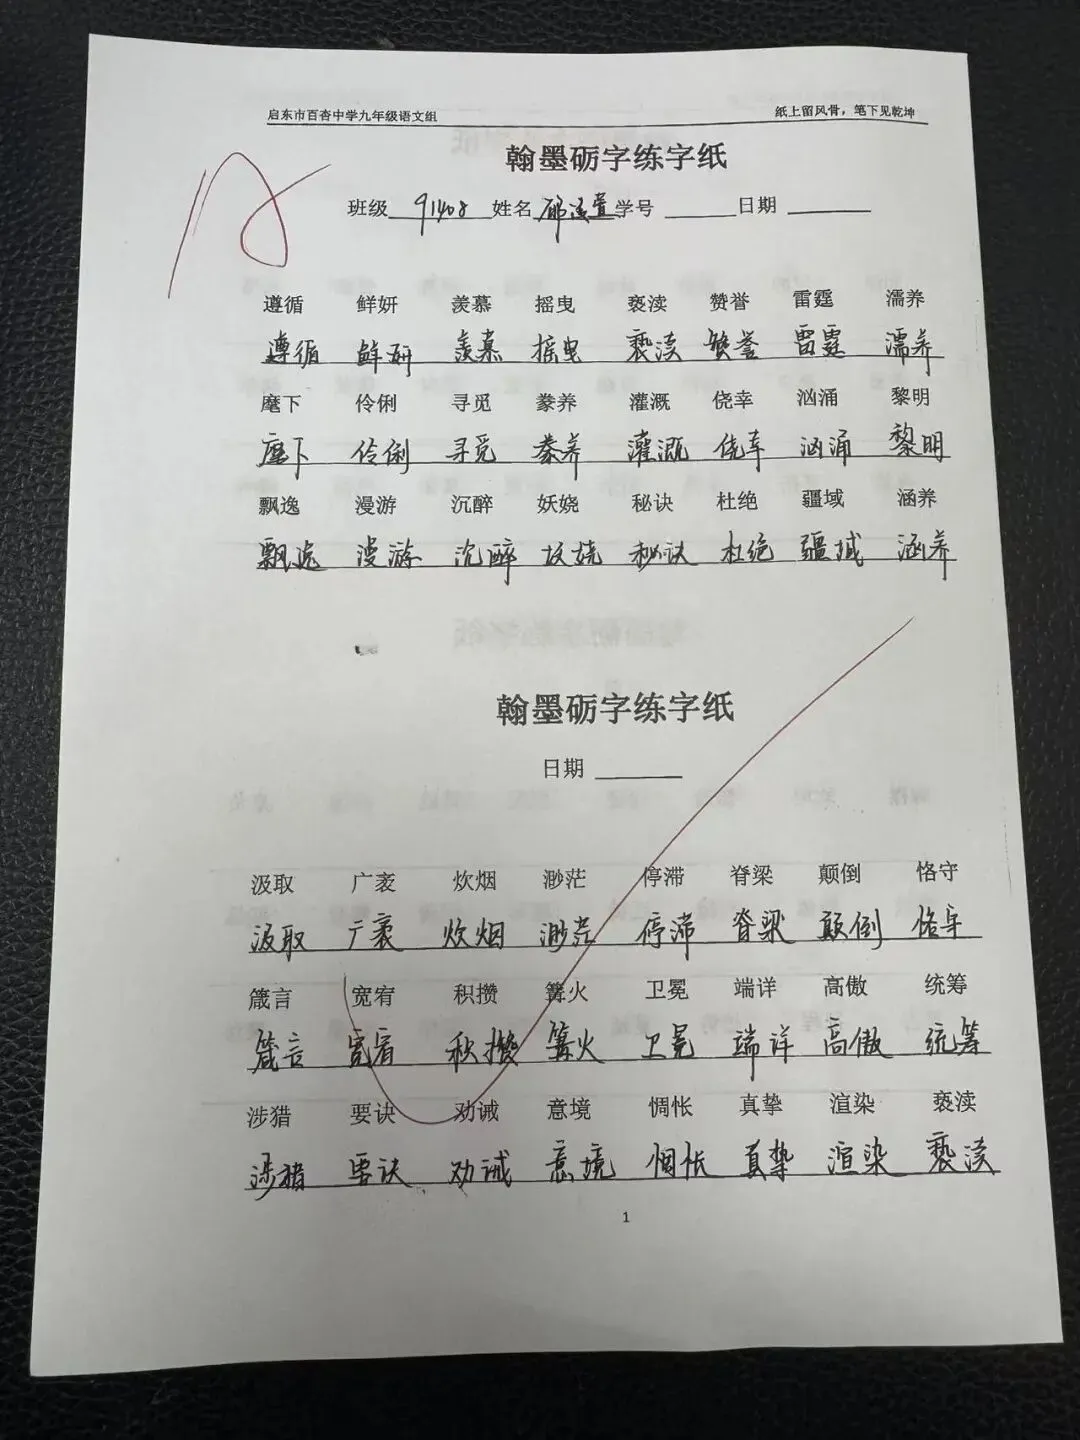 启东市百杏中学九年级语文组 纸上留风骨，笔下见乾坤
翰墨砺字练字纸
班级 91408 姓名 邱 萱 学号 日期
遵循 鲜妍 羡慕 摇曳 亵渎 赞誉 雷霆 濡养
遵循 鲜妍 羡慕 摇曳 亵渎 赞誉 雷霆 濡养
麾下 伶俐 寻觅 豢养 灌溉 侥幸 汹涌 黎明
麾下 伶俐 寻觅 豢养 灌溉 侥幸 汹涌 黎明
飘逸 漫游 沉醉 妖娆 秘诀 杜绝 疆域 涵养
飘逸 漫游 沉醉 妖娆 秘诀 杜绝 疆域 涵养
翰墨砺字练字纸
日期
汲取 广袤 炊烟 渺茫 停滞 脊梁 颠倒 恪守
汲取 广袤 炊烟 渺茫 停滞 脊梁 颠倒 恪守
箴言 宽宥 积攒 篝火 卫冕 端详 高傲 统筹
箴言 宽宥 积攒 篝火 卫冕 端详 高傲 统筹
涉猎 要诀 劝诫 意境 惆怅 真挚 渲染 亵渎
涉猎 要诀 劝诫 意境 惆怅 真挚 渲染 亵渎
1